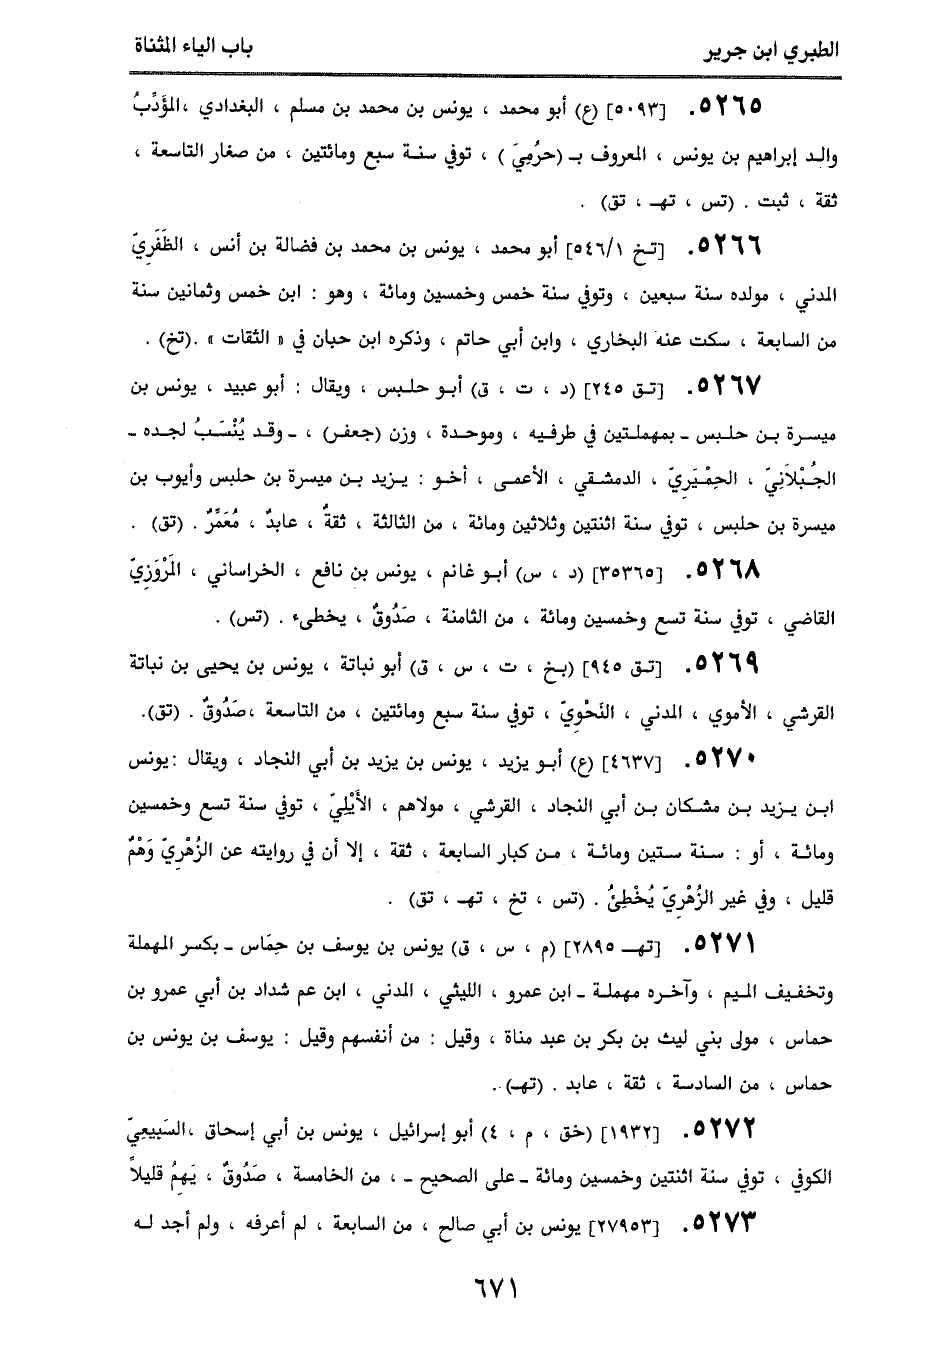 الطبري ابن جرير
باب الياء المثناة
٥٢٦٥. [٥٠٩٣] (ع) أبو محمد ، يونس بن محمد بن مسلم ، البغدادي ،المؤَدِّبُ
والد إبراهيم بن يونس ، المعروف بـ (حَرُمِيَ ) ، توفي سنة سبع ومائتين ، من صغار التاسعة ،
ثقة ، ثبت . (تس ، تهـ ، تق) .
٥٢٦٦. [تخ ٥٤٦/١] أبو محمد ، يونس بن محمد بن فضالة بن أنس ، الظَفَرِيّ
المدني ، مولده سنة سبعين ، وتوفي سنة خمس وخمسين ومائة ، وهو : ابن خمس وثمانين سنة
من السابعة ، سكت عنه البخاري ، وابن أبي حاتم ، وذكره ابن حبان في « الثقات » .(تخ) .
٥٢٦٧. [تق ٢٤٥] (د ، ت ، ق) أبو حلبس ، ويقال : أبو عبيد ، يونس بن
ميسرة بن حلبس ـ بمهملتين في طرفيه ، وموحدة ، وزن (جعفر) ، ـ وقد يُنْسَبُ لجده ـ
الجُبْلاَنِيّ ، الحِمْيَرِيّ ، الدمشقي ، الأعمى ، أخو : يزيد بن ميسرة بن حلبس وأيوب بن
ميسرة بن حلبس ، توفي سنة اثنتين وثلاثين ومائة ، من الثالثة ، ثقةٌ ، عابدٌ ، مُعَمَّرٌ . (تق) .
٥٢٦٨. [٣٥٣٦٥] (د ، س) أبو غانم ، يونس بن نافع ، الخراساني ، المَرْوَزِيّ
القاضي ، توفي سنة تسع وخمسين ومائة ، من الثامنة ، صَدُوقٌ ، يخطىء . (تس) .
٥٢٦٩. [تق ٩٤٥] (بخ ، ت ، س ، ق) أبو نباتة ، يونس بن يحيى بن نباتة
القرشي ، الأموي ، المدني ، النَحْوِيّ ، توفي سنة سبع ومائتين ، من التاسعة ،صَدُوقٌ . (تق).
٥٢٧٠. [٤٦٣٧] (ع) أبو يزيد ، يونس بن يزيد بن أبي النجاد ، ويقال :يونس
ابن يزيد بن مشكان بن أبي النجاد ، القرشي ، مولاهم ، الأَيْلِيّ ، توفي سنة تسع وخمسين
ومائة ، أو : سنة ستين ومائة ، من كبار السابعة ، ثقة ، إلا أن في روايته عن الزُهْرِيّ وَهْمٌ
قليل ، وفي غير الزُهْرِيّ يُخْطِئُ . (تس ، تخ ، تهـ ، تق) .
٥٢٧١. [تهـ ٢٨٩٥] (م ، س ، ق) يونس بن يوسف بن حِمَاس ـ بكسر المهملة
وتخفيف الميم ، وآخره مهملة ـ ابن عمرو ، الليثي ، المدني ، ابن عم شداد بن أبي عمرو بن
حماس ، مولى بني ليث بن بكر بن عبد مناة ، وقيل : من أنفسهم وقيل : يوسف بن يونس بن
حماس ، من السادسة ، ثقة ، عابد . (تهـ) .
٥٢٧٢. [١٩٣٢] (خق ، م ، ٤) أبو إسرائيل ، يونس بن أبي إسحاق ،السَبِيعِيّ
الكوفي ، توفي سنة اثنتين وخمسين ومائة ـ على الصحيح ـ ، من الخامسة ، صَدُوقٌ ، يَهِمُ قليلاً
٥٢٧٣. [٢٧٩٥٣] يونس بن أبي صالح ، من السابعة ، لم أعرفه ، ولم أجد له
٦٧١